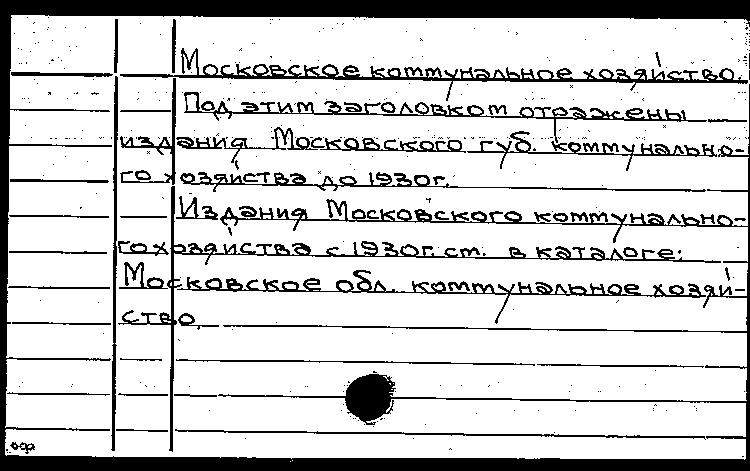 Московское коммунальное хозяйство.
Под этим заголовком отражены
издания Московского губ. коммунально-
го хозяйства до 1930г.
Издания Московского коммунально-
го хозяйства с 1930г. см. в каталоге:
Московское обл. коммунальное хозяй-
ство.